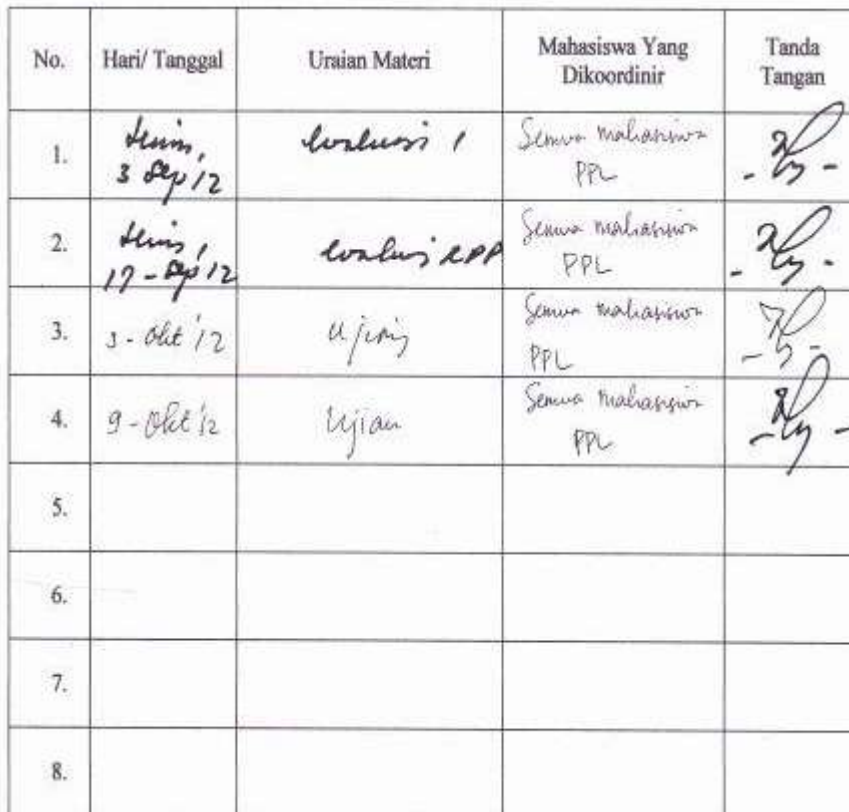 No. Hari/ Tanggal Uraian Materi Mahasiswa Yang Dikoordinir Tanda Tangan
1. Senin, 3 Sep '12 Evaluasi 1 Semua mahasiswa PPL
2. Senin, 17 - Sep '12 Evaluasi RPP Semua mahasiswa PPL
3. 3 - Okt '12 Ujian Semua mahasiswa PPL
4. 9 - Okt '12 Ujian Semua mahasiswa PPL
5.
6.
7.
8.